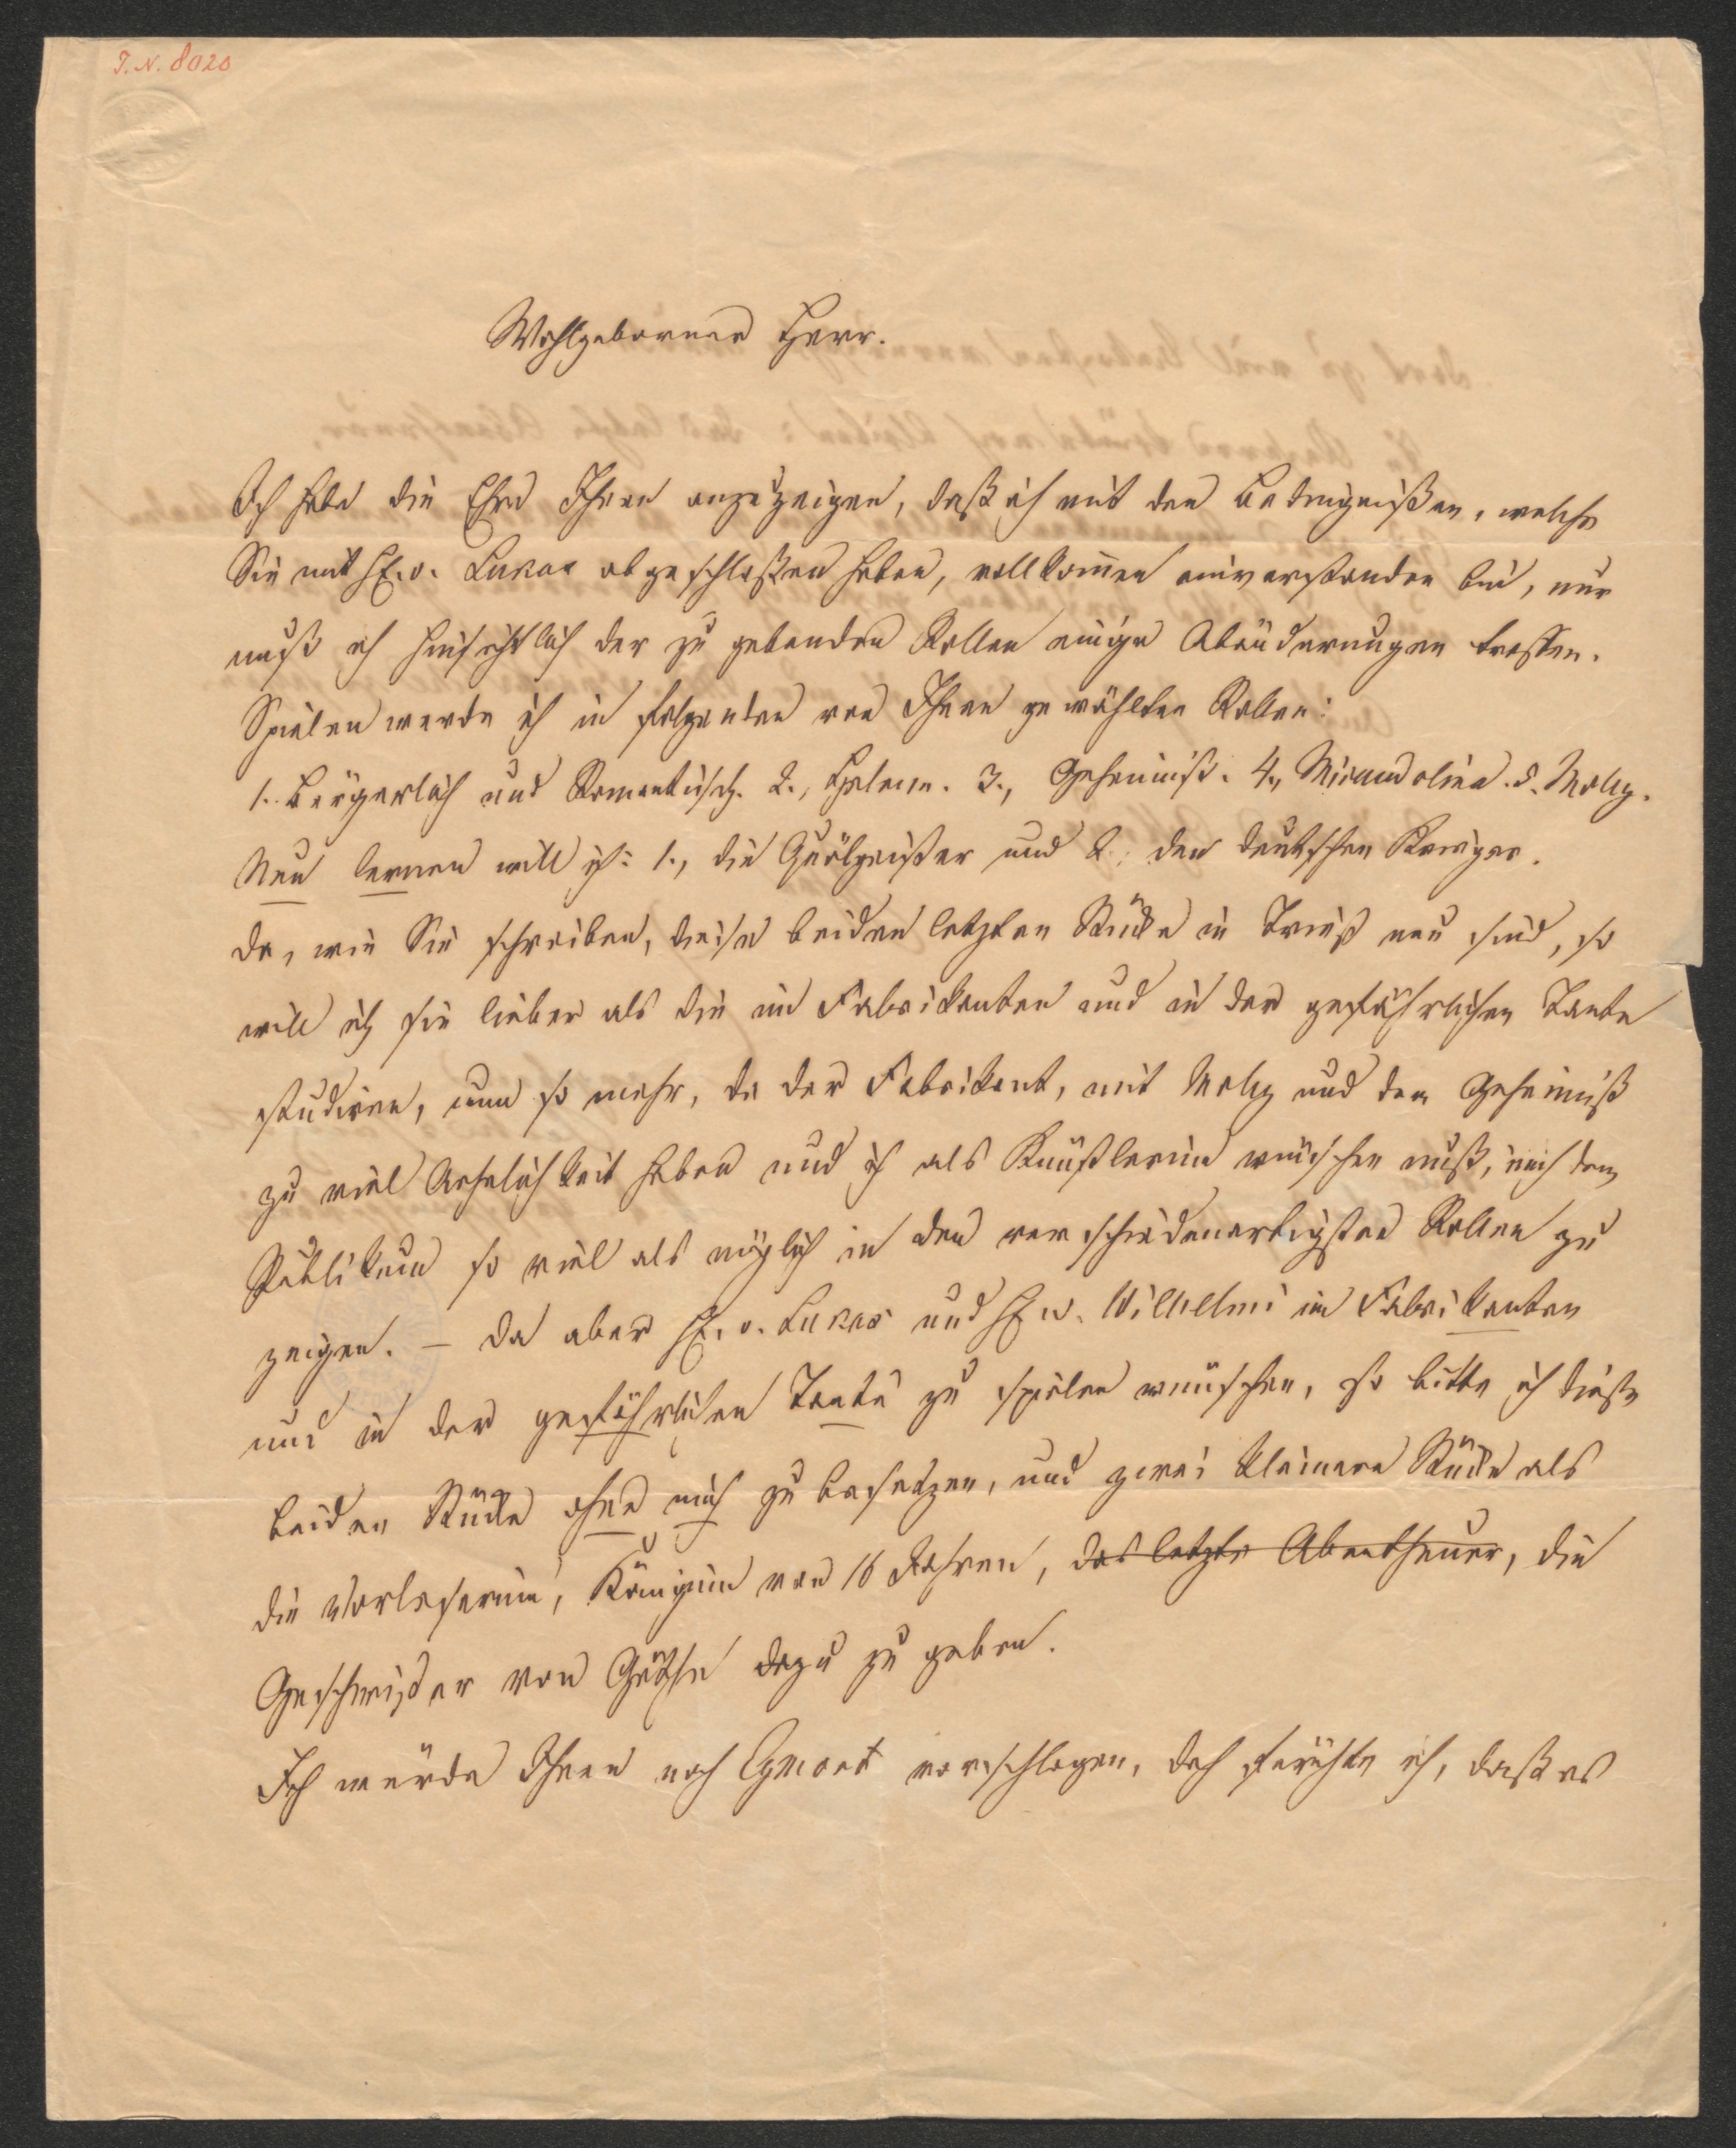 J. N. 8020
Wohlgeborner Herr.
Ich habe die Ehre Ihnen anzuzeigen, daß ich mit den Bedingnißen, welche
Sie mit H. v. Lukas abgeschloßen haben, vollkom̄en einverstanden bin, nur
muß ich hinsichtlich der zu gebenden Rollen einige Abänderungen treffen.
Spielen werde ich in folgenden von Ihnen gewählten Rollen:
1. Bürgerlich und Romantisch. 2., Helene. 3., Geheimniß. 4., Mirandolina. 5. Moly.
Neu lernen will ich: 1., die Quälgeister und 2., den deutschen Krieger.
Da, wie Sie schreiben, diese beiden letzten Stücke in Triest neu sind, so
will ich sie lieber als die im Fabrikanten und in der gefährlichen Tante
studiren, um so mehr, da der Fabrikant, mit Moly und dem Geheimniß
zu viel Aehnlichkeit haben und ich als Künstlerin wünschen muß, mich dem
Publikum so viel als möglich in den verschiedenartigsten Rollen zu
zeigen. – Da aber H. v. Lukas und H. v. Wilhelmi im Fabrikanten
und in der gefährlichen Tante zu spielen wünschen, so bitte ich diese
beiden Stücke ohne mich zu besetzen, und zwei kleinere Stücke als
die Vorleserin, Königin von 16 Jahren, das letzte Abentheuer, die
Geschwister von Göthe dazu zu geben.
Ich würde Ihnen noch Egmont vorschlagen, doch fürchte ich, daß es